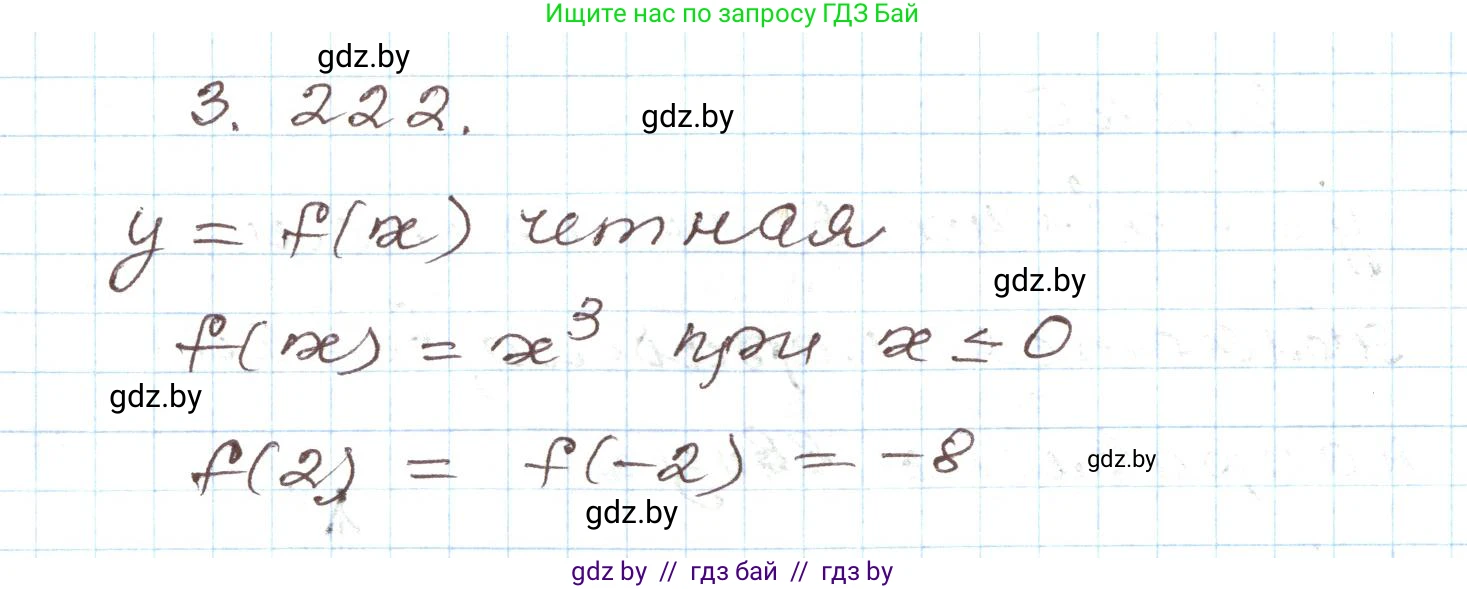 Ищите нас по запросу ГДЗ Бай
gdz.by
3. 222.
gdz.by
y = f(x) четная
gdz.by
f(x) = x³ при x ≤ 0
gdz.by
f(2) = f(-2) = -8
gdz.by
gdz.by
gdz by // гдз бай // гдз by